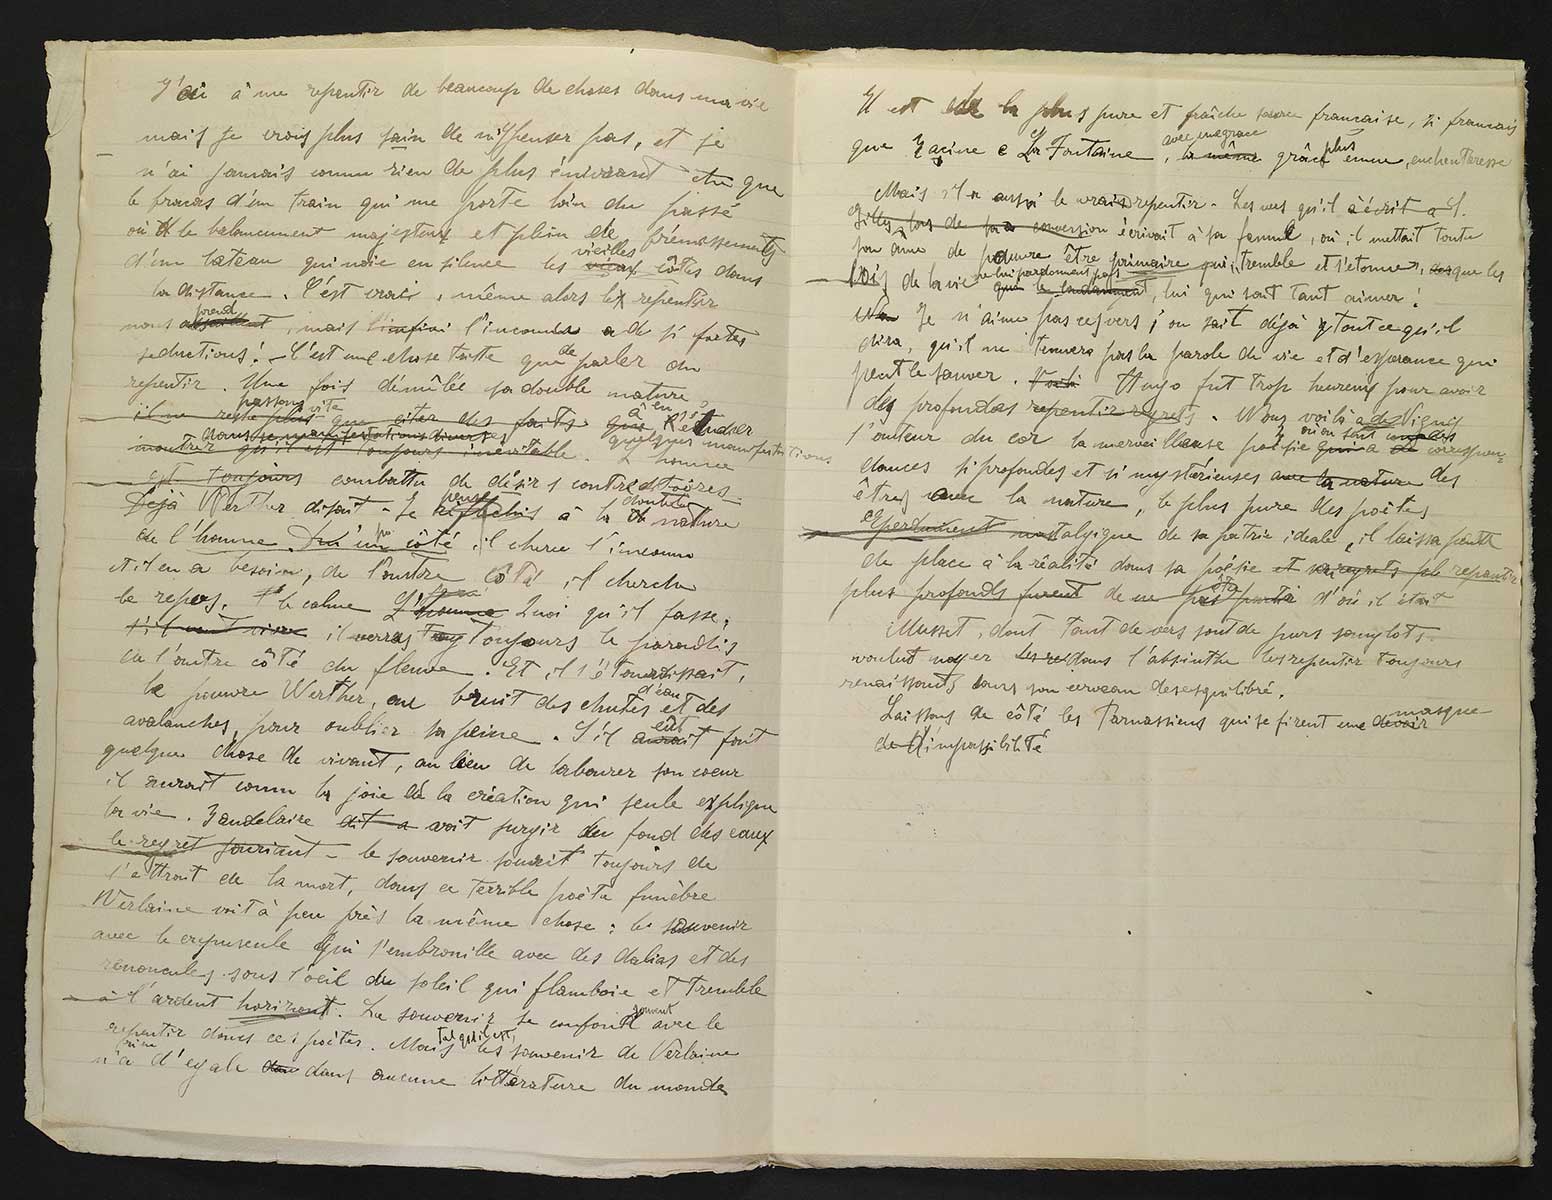 J'ai à me repentir de beaucoup de choses dans ma vie
mais je crois plus sain de n'y penser pas, et je
n'ai jamais connu rien de plus énivrant que
le fracas d'un train qui me porte loin du passé
où le balancement majesteux et plein de frémissements
d'un bateau qui noie en silence les vieilles côtes dans
la distance. C'est vrais, même alors le repentir
nous prend, mais l'infini l'inconnu a de si fortes
seductions! C'est une chose triste que de parler du
repentir. Une fois démêlée sa double nature
passons vite à en étudier
il ne reste plus que citer des faits
dans ses manifestations diverses quelques manifestations
montrer qu'il est toujours inévitable. L'homme
est toujours combattu de désirs contradictoires
Dejà Werther disait - Je pense à la double nature
de l'homme. D'un côté il cherce l'inconnu
et il en a besoin, de l'autre côté il cherche
le repos, le calme. Quoi qu'il fasse,
s'il veut vivre il verras toujours le paradis
de l'autre côté du fleuve. Et il s'étourdissait,
le pauvre Werther, au bruit des chutes d'eau et des
avalanches, pour oublier sa peine. S'il eût fait
quelque chose de vivant, au lieu de labourer son coeur
il aurait connu la joie de la création qui seule explique
la vie. Baudelaire dit a voit surgir du fond des eaux
le regret souriant - le souvenir sourit toujours de
l'attrait de la mort, dans ce terrible poète funèbre
Verlaine voit à peu près la même chose: le souvenir
avec le crepuscule qui s'embrouille avec des dalias et des
renoncules sous l'oeil du soleil qui flamboie et tremble
à l'ardent horizont. Le souvenir se confond souvent avec le
repentir dans ces poètes. Mais tel quel est, les souvenir de Verlaine
n'a d'egale dans aucune littérature du monde
Il est de la plus pure et fraîche source francaise, si francais
que Racine e La Fontaine, avec une grace la même grâce plus emue, enchenteresse
Mais il a aussi le vrais repentir - Les vers qu'il a écrit a S.
Gilles lors de sa conversion écrivait à sa femme, où il mettait toute
son âme de pauvre être primaire qui tremble et s'etonne, que les
lois de la vie ne lui pardonnent pas, lui qui sait tant aimer!
Je n'aime pas ces vers; on sait déjà tout ce qu'il
dira, qu'il ne trouvera pas la parole de vie et d'esperance qui
peut le sauver. Hugo fut trop heureux pour avoir
des profondes repentir regrets. Nous voilà a de Vigny
l'auteur du cor la merveilleuse poésie où on sent correspon-
dances si profondes et si mystérieuses avec la nature des
êtres avec la nature, le plus pure des poètes
eperdument nostalgique de sa patrie ideale, il laissa peu
de place à la réalité dans sa poésie et ses regrets ple repentir
plus profonds furent de ne pas d'où il était
Musset, dont tant de vers sont de purs sanglots
voulut noyer dans l'absinthe les repentir toujours
renaissants dans son cerveau desesquilibré.
Laissons de côté les Parnassiens qui se firent une masque
de l'impassibilité